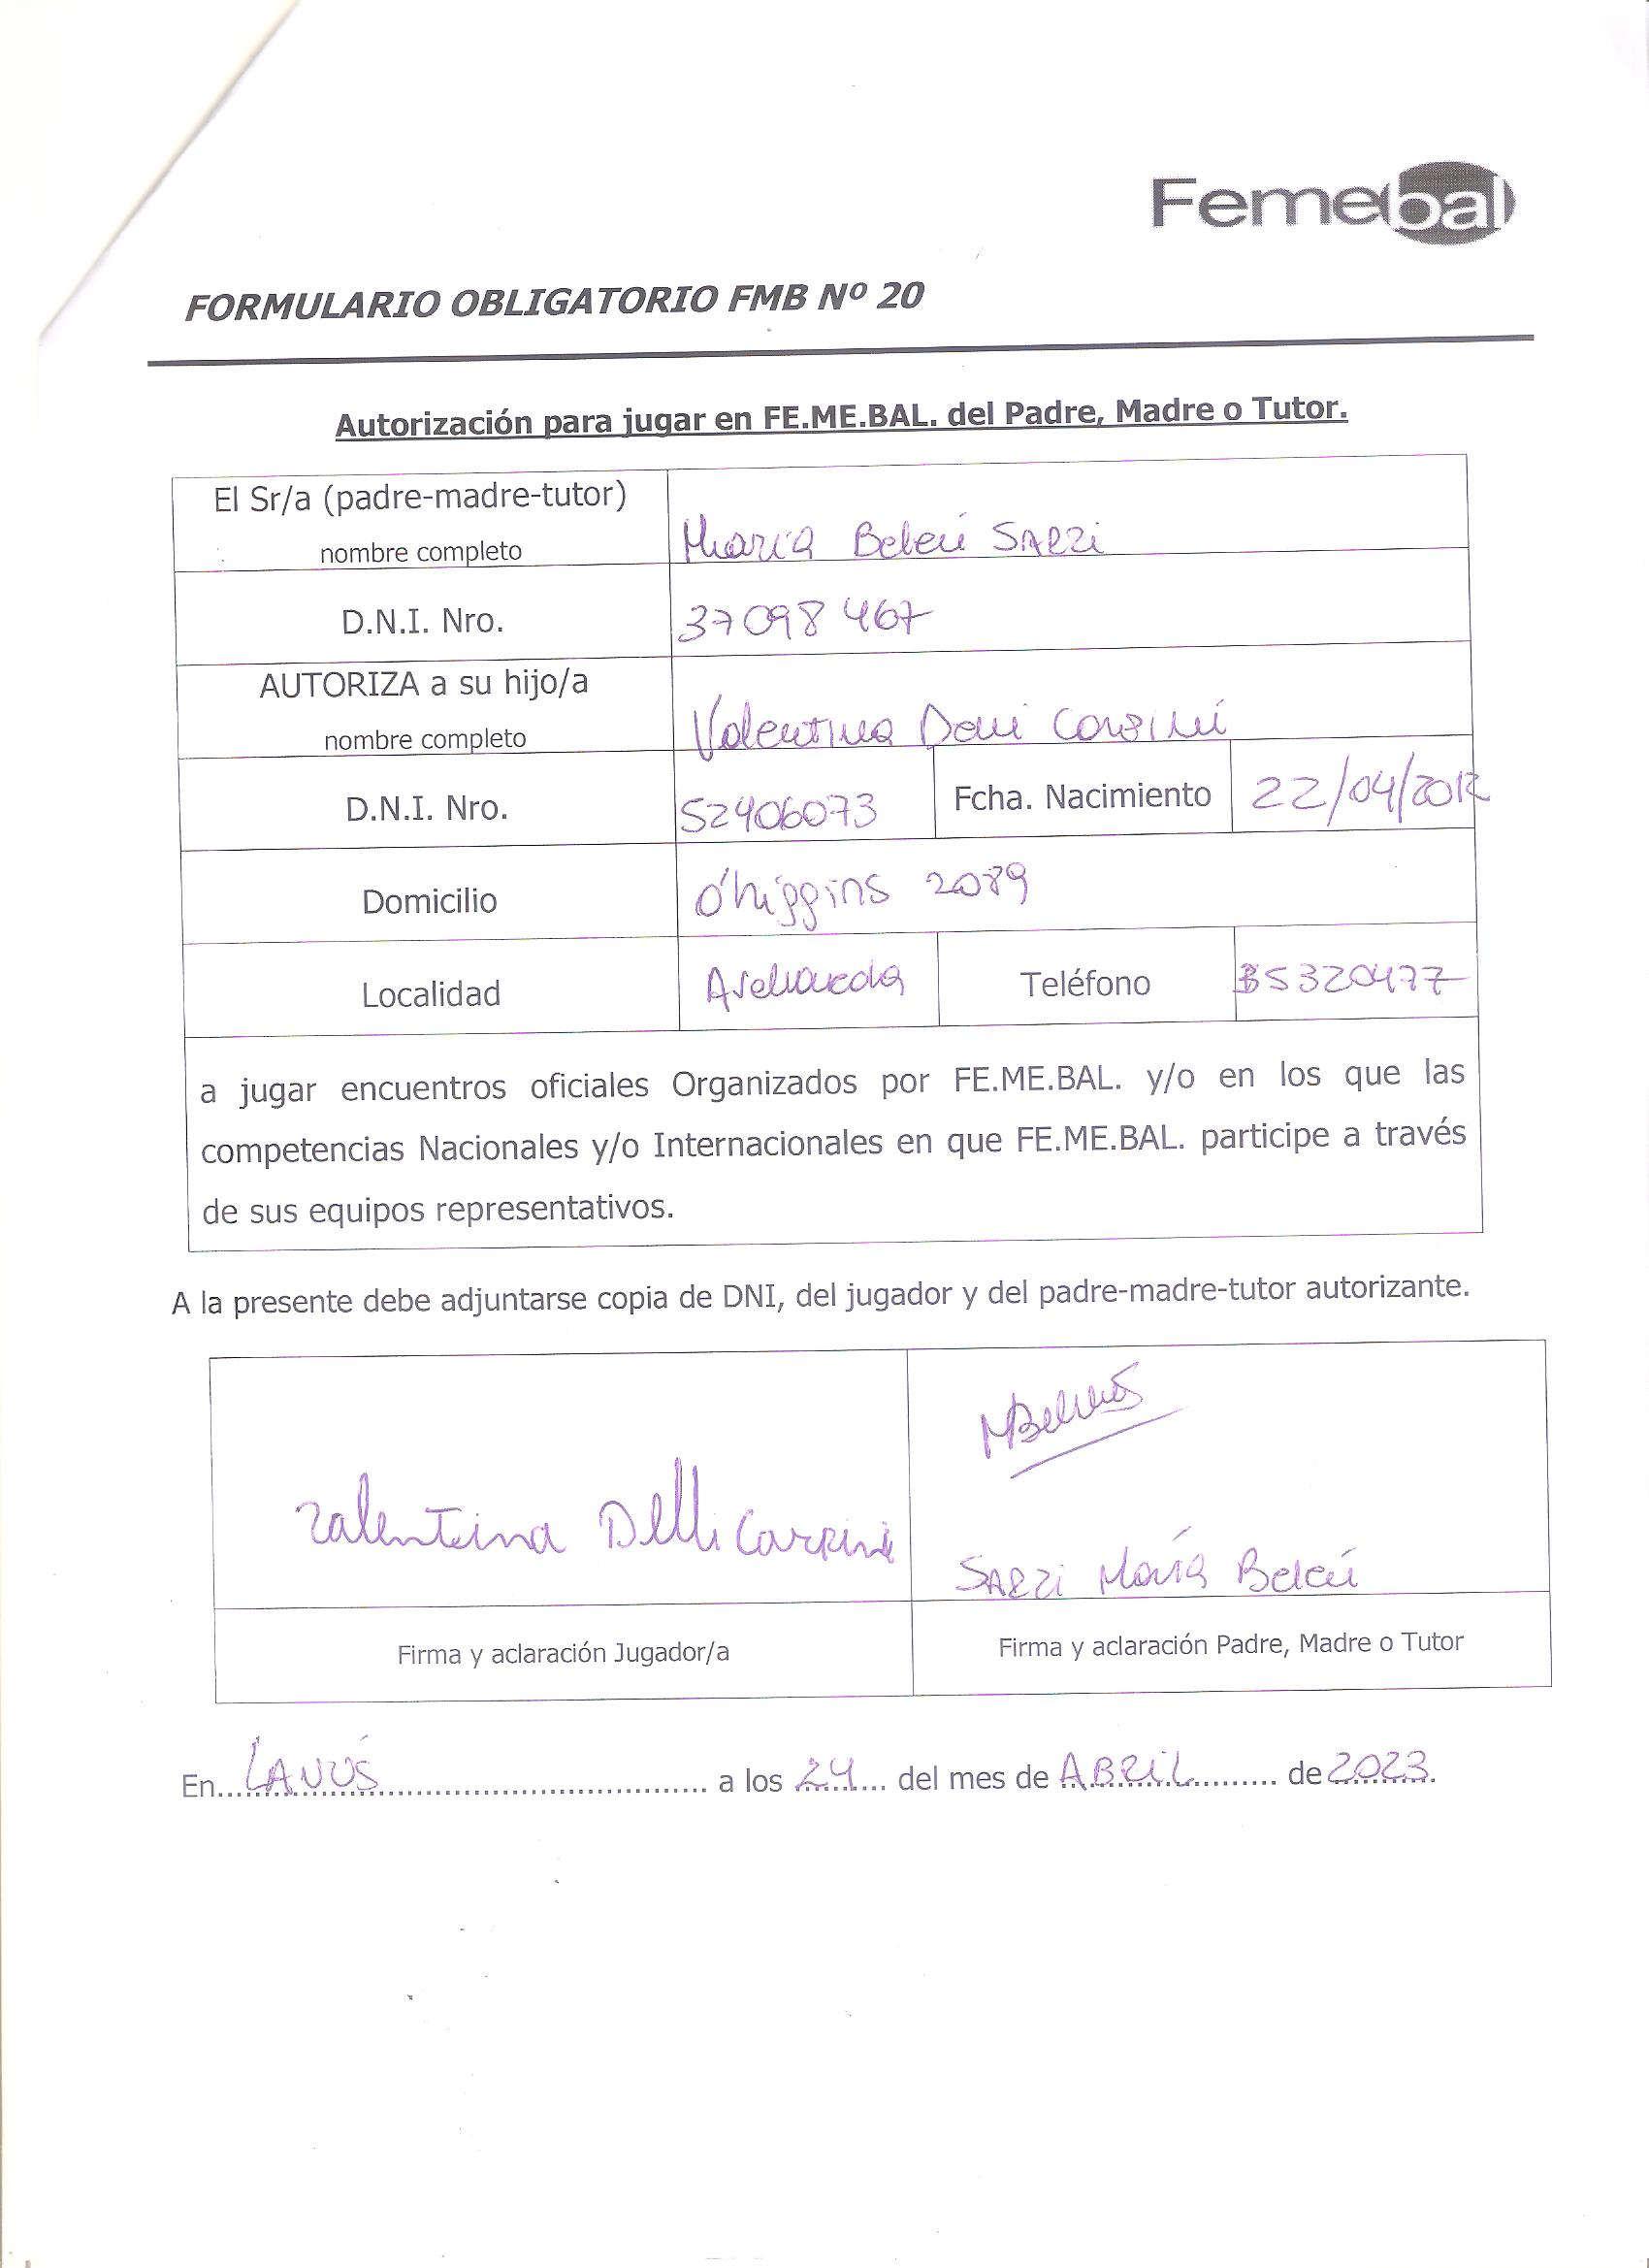 Femebal
FORMULARIO OBLIGATORIO FMB Nº 20
Autorización para jugar en FE.ME.BAL. del Padre, Madre o Tutor.
El Sr/a (padre-madre-tutor)
nombre completo
María Belén SARZI
D.N.I. Nro.
37098467
AUTORIZA a su hijo/a
nombre completo
Valentina
D.N.I. Nro.
52406073
Fcha. Nacimiento
22/04/2012
Domicilio
O'higgins 2089
Localidad
Avellaneda
Teléfono
5320477
a jugar encuentros oficiales Organizados por FE.ME.BAL. y/o en los que las
competencias Nacionales y/o Internacionales en que FE.ME.BAL. participe a través
de sus equipos representativos.
A la presente debe adjuntarse copia de DNI, del jugador y del padre-madre-tutor autorizante.
Valentina Delli
SARZI María Belén
Firma y aclaración Jugador/a
Firma y aclaración Padre, Madre o Tutor
En LANÚS a los 24 del mes de ABRIL de 2023.